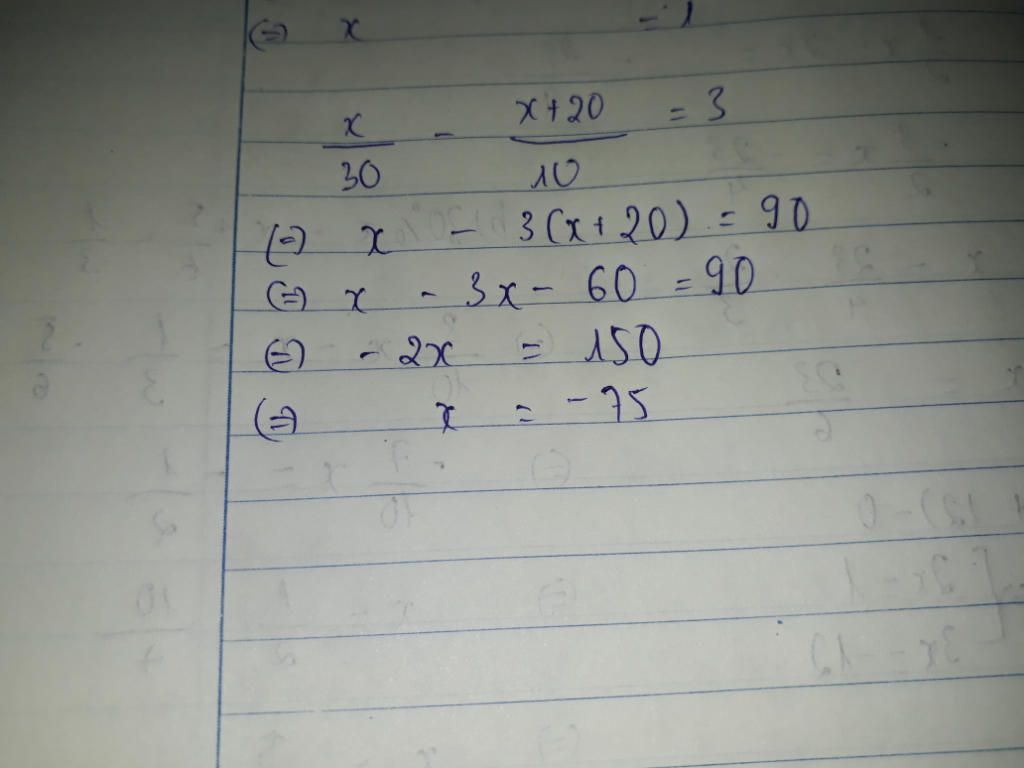 (=) x = 1
x/30 - x+20/10 = 3
(=) x - 3(x+20) = 90
(=) x - 3x - 60 = 90
(=) - 2x = 150
(=) x = -75